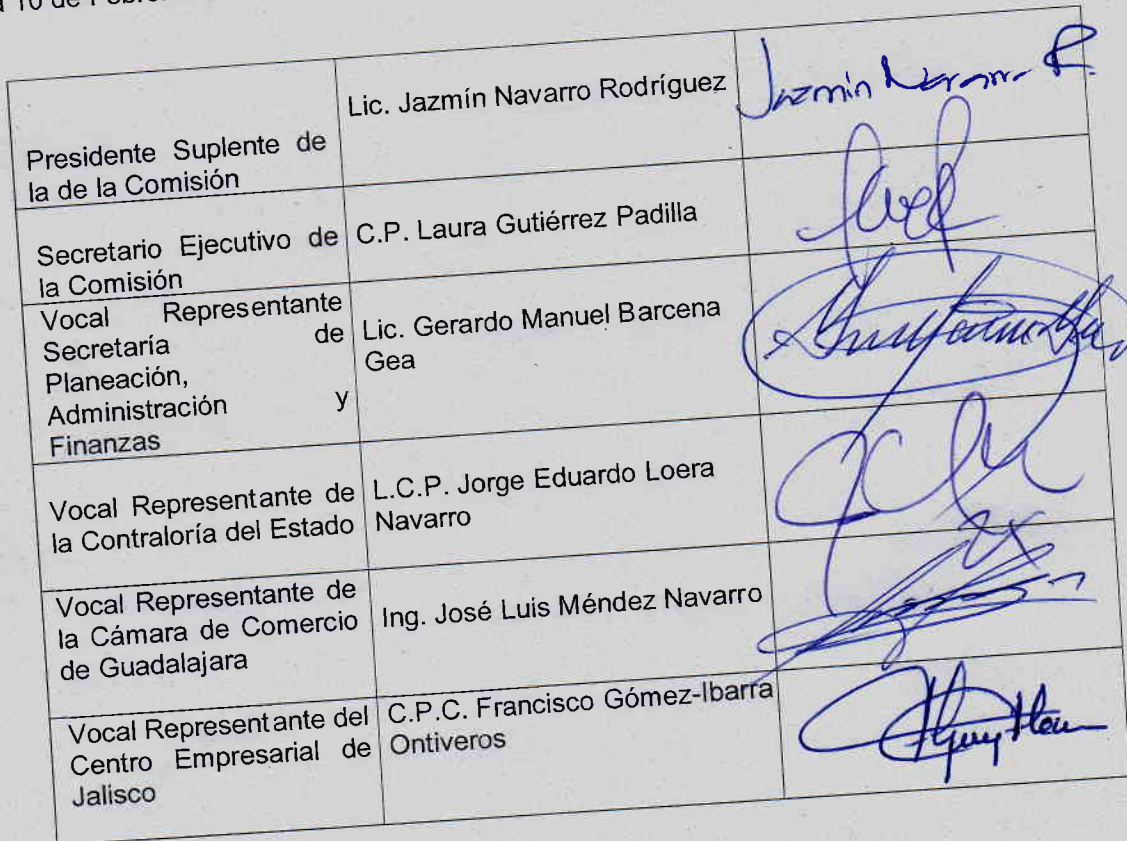 10 de
Presidente Suplente de
la de la Comisión
Lic. Jazmín Navarro Rodríguez
Jazmin Navarro R.
Secretario Ejecutivo de
la Comisión
C.P. Laura Gutiérrez Padilla
Vocal Representante
Secretaría de
Planeación,
Administración y
Finanzas
Lic. Gerardo Manuel Barcena
Gea
Vocal Representante de
la Contraloría del Estado
L.C.P. Jorge Eduardo Loera
Navarro
Vocal Representante de
la Cámara de Comercio
de Guadalajara
Ing. José Luis Méndez Navarro
Vocal Representante del
Centro Empresarial de
Jalisco
C.P.C. Francisco Gómez-Ibarra
Ontiveros